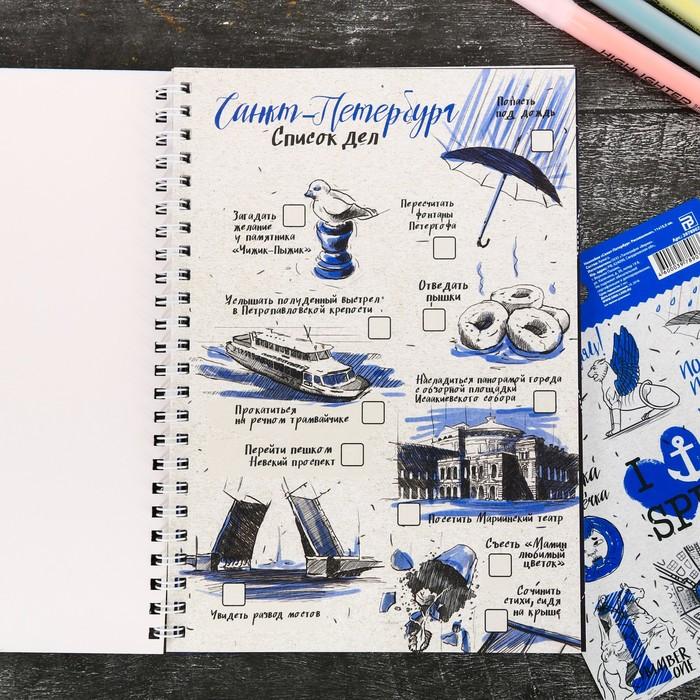 Санкт-Петербург
Список дел
Попасть
под дождь
Загадать
желание
у памятника
«Чижик-Пыжик»
Пересчитать
фонтаны
Петергофа
Отведать
пышки
Услышать полуденный выстрел
в Петропавловской крепости
Насладиться панорамой города
с обзорной площадки
Исаакиевского собора
Прокатиться
на речном трамвайчике
Перейти пешком
Невский проспект
Посетить Мариинский театр
Съесть «Мамин
любимый
цветок»
Увидеть развод мостов
Сочинить
стихи, сидя
на крыше
HIGHLIGHTER
I
SP
NUMBER
ONE